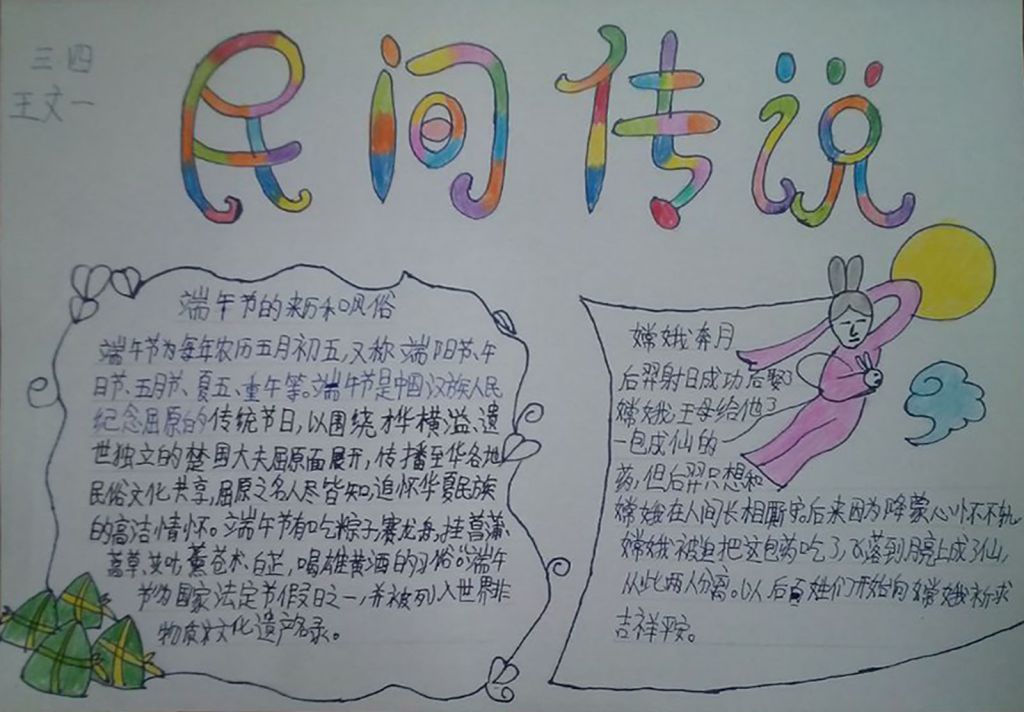 三四
王文一
民间传说
端午节的来历和风俗
端午节为每年农历五月初五,又称端阳节、午
日节、五月节、夏五、重午等。端午节是中国汉族人民
纪念屈原的传统节日,以围绕才华横溢、遗
世独立的楚国大夫屈原而展开,传播至华各地
民俗文化共享,屈原之名人尽皆知,追怀华夏民族
的高洁情怀。端午节有吃粽子赛龙舟,挂菖蒲、
蒿草、艾叶,薰苍术、白芷,喝雄黄酒的习俗“端午
节为国家法定节假日之一,并被列入世界非
物质文化遗产名录。
嫦娥奔月
后羿射日成功后娶了
嫦娥,王母给他了
一包成仙的
药,但后羿只想和
嫦娥在人间长相厮守。后来因为降蒙心怀不轨
嫦娥被迫把这包药吃了,飞落到月亮上成了仙,
从此两人分离。以后百姓们开始向嫦娥祈求
吉祥平安。